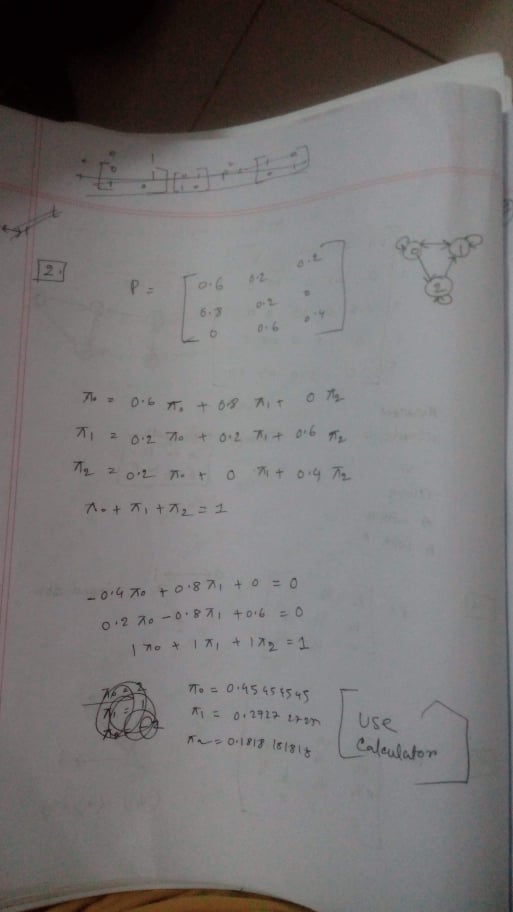 2.
P = [ 0.6 0.2 0.2
0.8 0.2 0
0 0.6 0.4 ]
0 1
2
π₀ = 0.6 π₀ + 0.8 π₁ + 0 π₂
π₁ = 0.2 π₀ + 0.2 π₁ + 0.6 π₂
π₂ = 0.2 π₀ + 0 π₁ + 0.4 π₂
π₀ + π₁ + π₂ = 1
-0.4 π₀ + 0.8 π₁ + 0 = 0
0.2 π₀ - 0.8 π₁ + 0.6 = 0
1 π₀ + 1 π₁ + 1 π₂ = 1
π₀ = 0.45454545
π₁ = 0.2727 2727
π₂ = 0.1818 181818
Use
Calculator